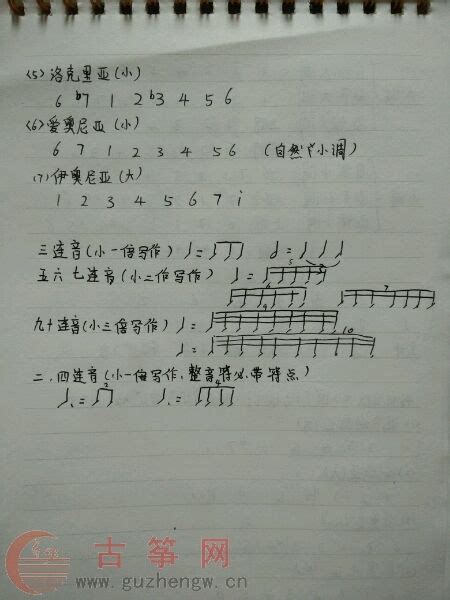 (5) 洛克里亚(小)
6 b7 1 2 b3 4 5 6
(6) 爱奥尼亚(小)
6 7 1 2 3 4 5 6 (自然小调)
(7) 伊奥尼亚(大)
1 2 3 4 5 6 7 i
三连音(小一倍写作) ♩= ♩=
五六七连音(小二倍写作) ♩= 5
6 7
九十连音(小三倍写作) ♩= 9
♩= 10
二、四连音(小一倍写作,整音符必带符点)
♩.= 2 ♩.= 4
古筝网
www.guzhengw.cn